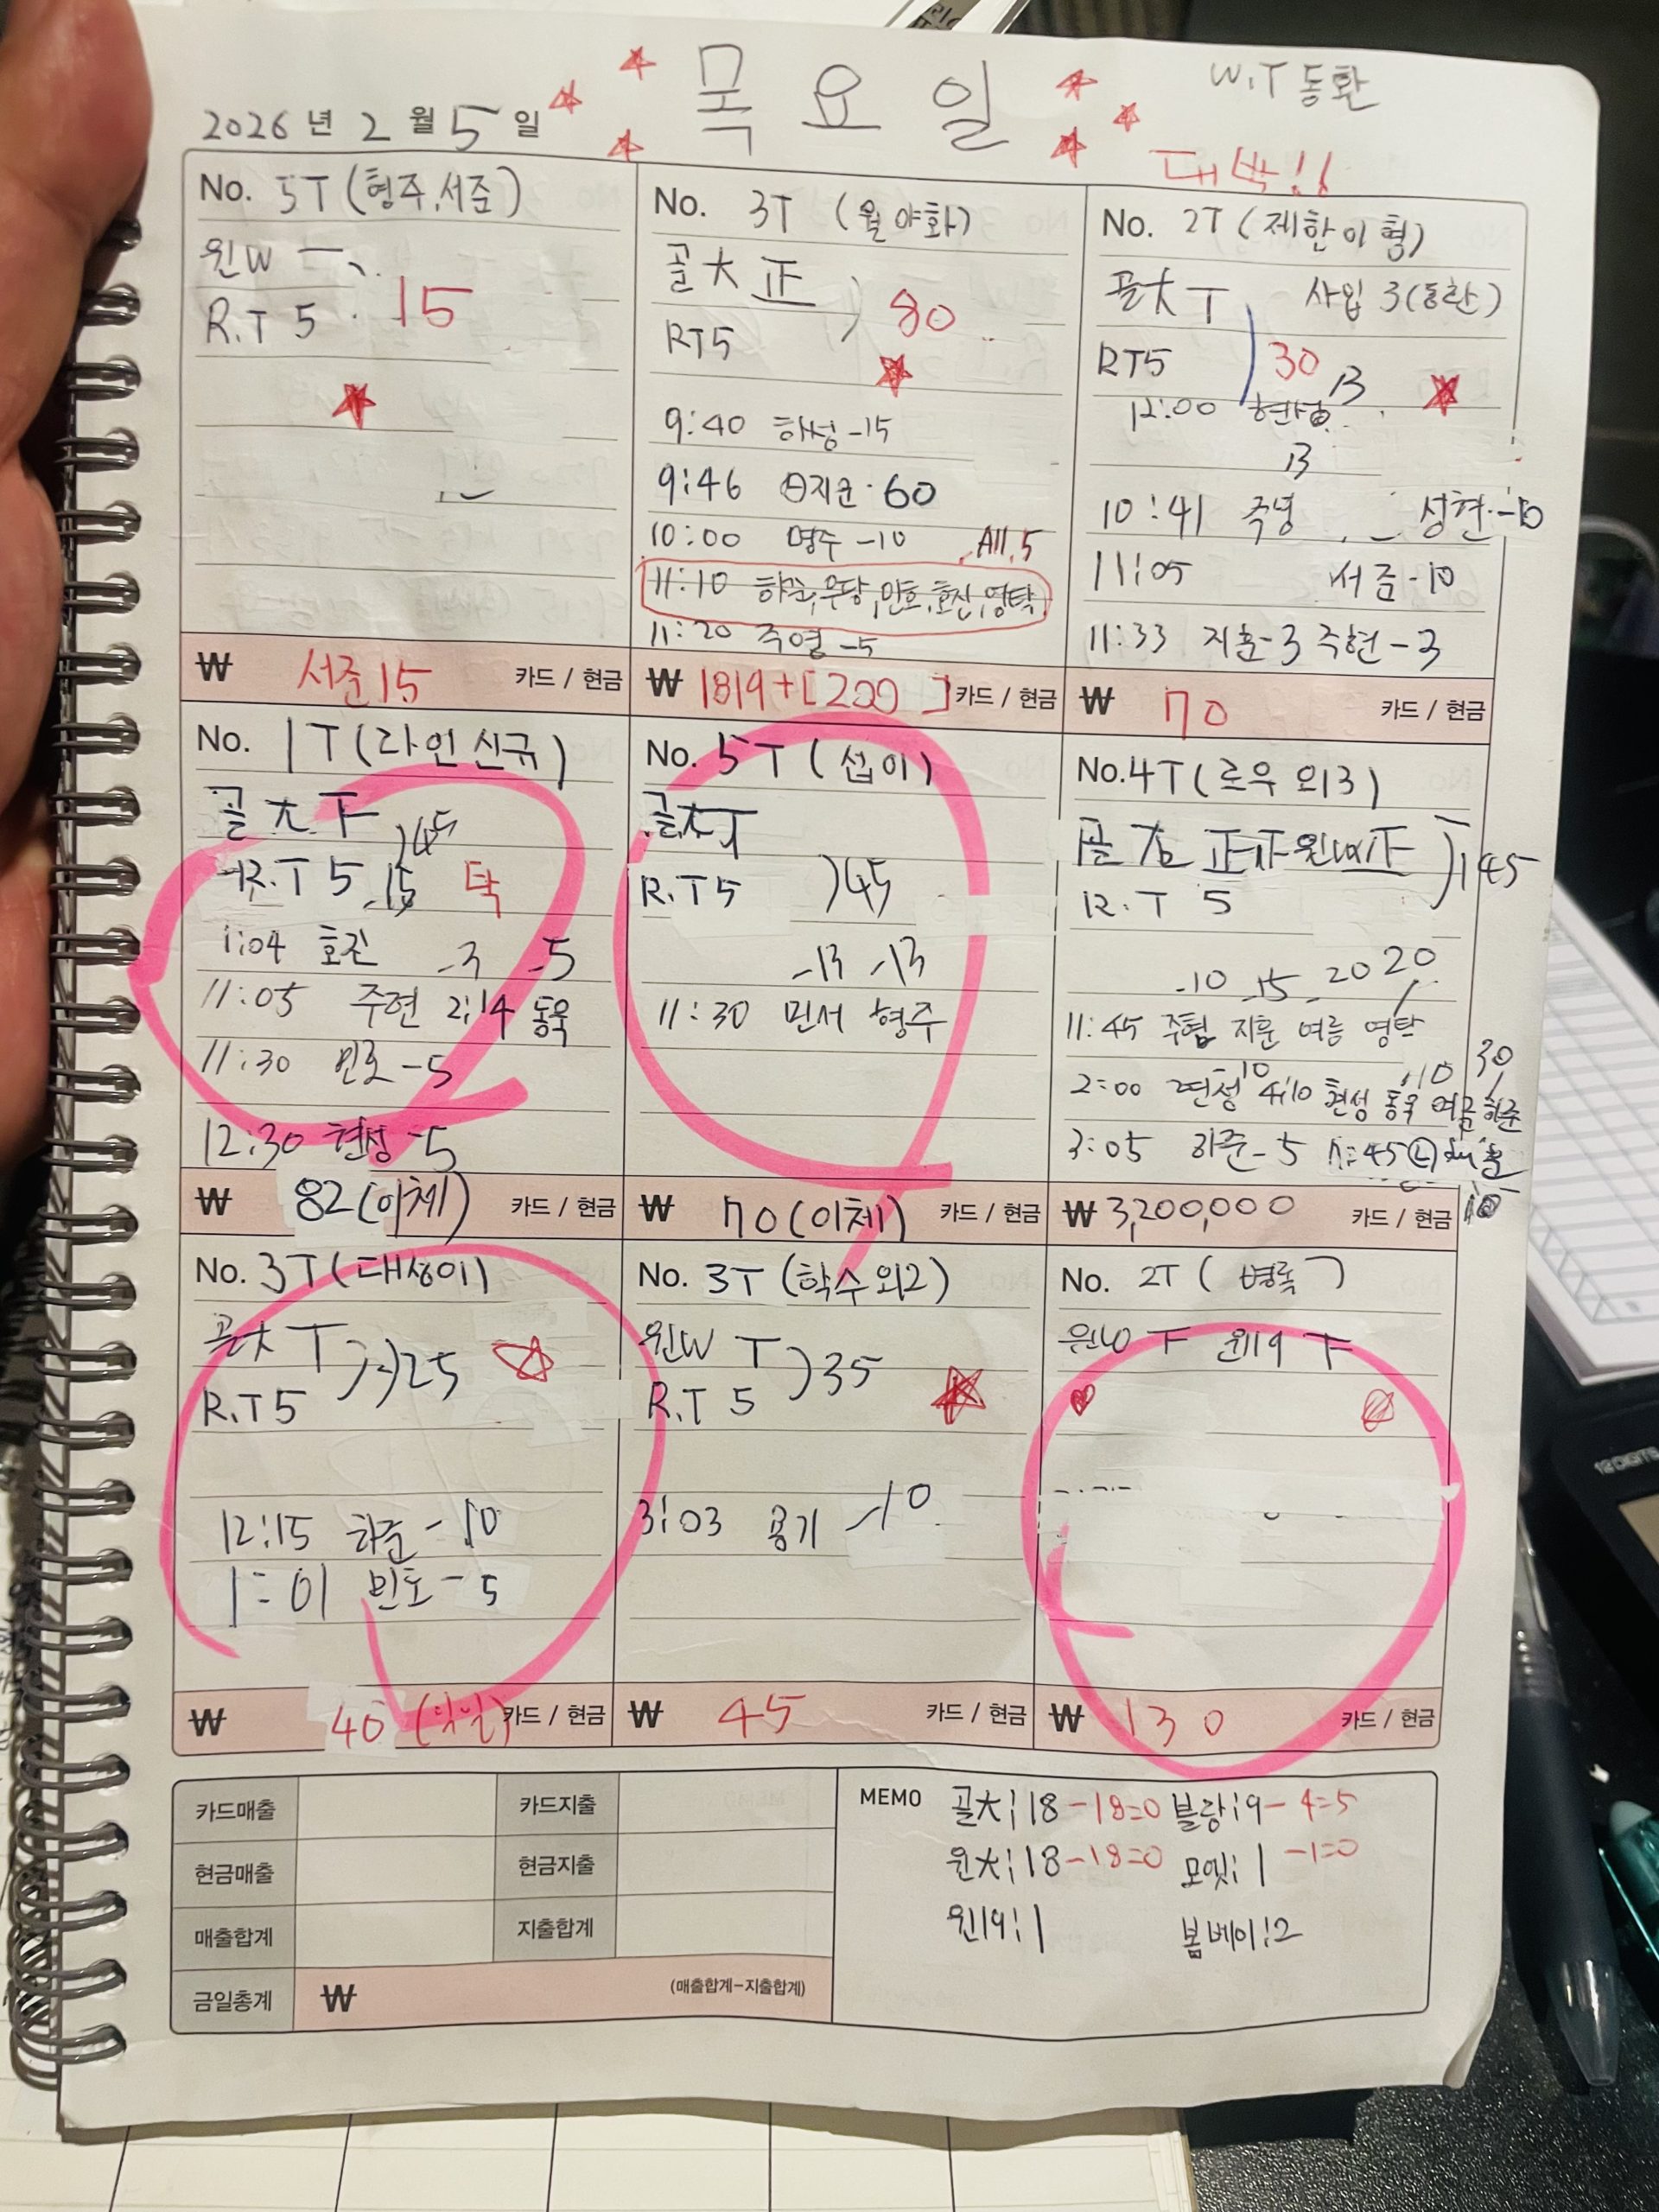 2026 년 2 월 5 일
목요일
W.T 동환
대박!!
No. 5T (형주,서준)
윈W 一
R.T 5
15
₩ 서준 15 카드 / 현금
No. 3T (월야화)
골大 正
RT5
80
9:40 하성 -15
9:46 지군 · 60
10:00 명주 -10 All.5
11:10
11:20 주영 -5
₩ 1819+[200] 카드 / 현금
No. 2T (제한이형)
골大 T 사입 3(동환)
RT5
30 13
12:00 현성
13
10:41 주녕 성현 -10
11:05 서준 -10
11:33 지훈 -3 주현 -3
₩ 70 카드 / 현금
No. 1T (라인신규)
골大 下
45
R.T 5 -15 탁
1:04 호진 -3 -5
11:05 주현 2:14 동욱
11:30 민호 -5
12:30 현성 -5
₩ 82 (이체) 카드 / 현금
No. 5T (섭이)
골大
R.T 5
45
-13 -13
11:30 민서 형주
₩ 70 (이체) 카드 / 현금
No. 4T (로우 외3)
R.T 5
145
-10 -15 -20 20
11:45 주협 지훈 여름 영탁
-10 -10 30
2:00 4:10 현성 동욱 여름 하준
3:05 하준 -5
10
₩ 3,200,000 카드 / 현금
No. 3T (대성이)
골大 T
R.T 5
25
12:15 하준 -10
1:01 민호 -5
₩ 40 카드 / 현금
No. 3T (학수외2)
윈W T
R.T 5
35
3:03 용기 -10
₩ 45 카드 / 현금
No. 2T (병록)
윈W 下 윈19 下
₩ 130 카드 / 현금
카드매출 카드지출
현금매출 현금지출
매출합계 지출합계
금일총계 ₩ (매출합계-지출합계)
MEMO
골大;18 -18=0 블랑;9 -4=5
윈大;18 -18=0 모엣; 1 -1=0
윈19;1 봄베이;2